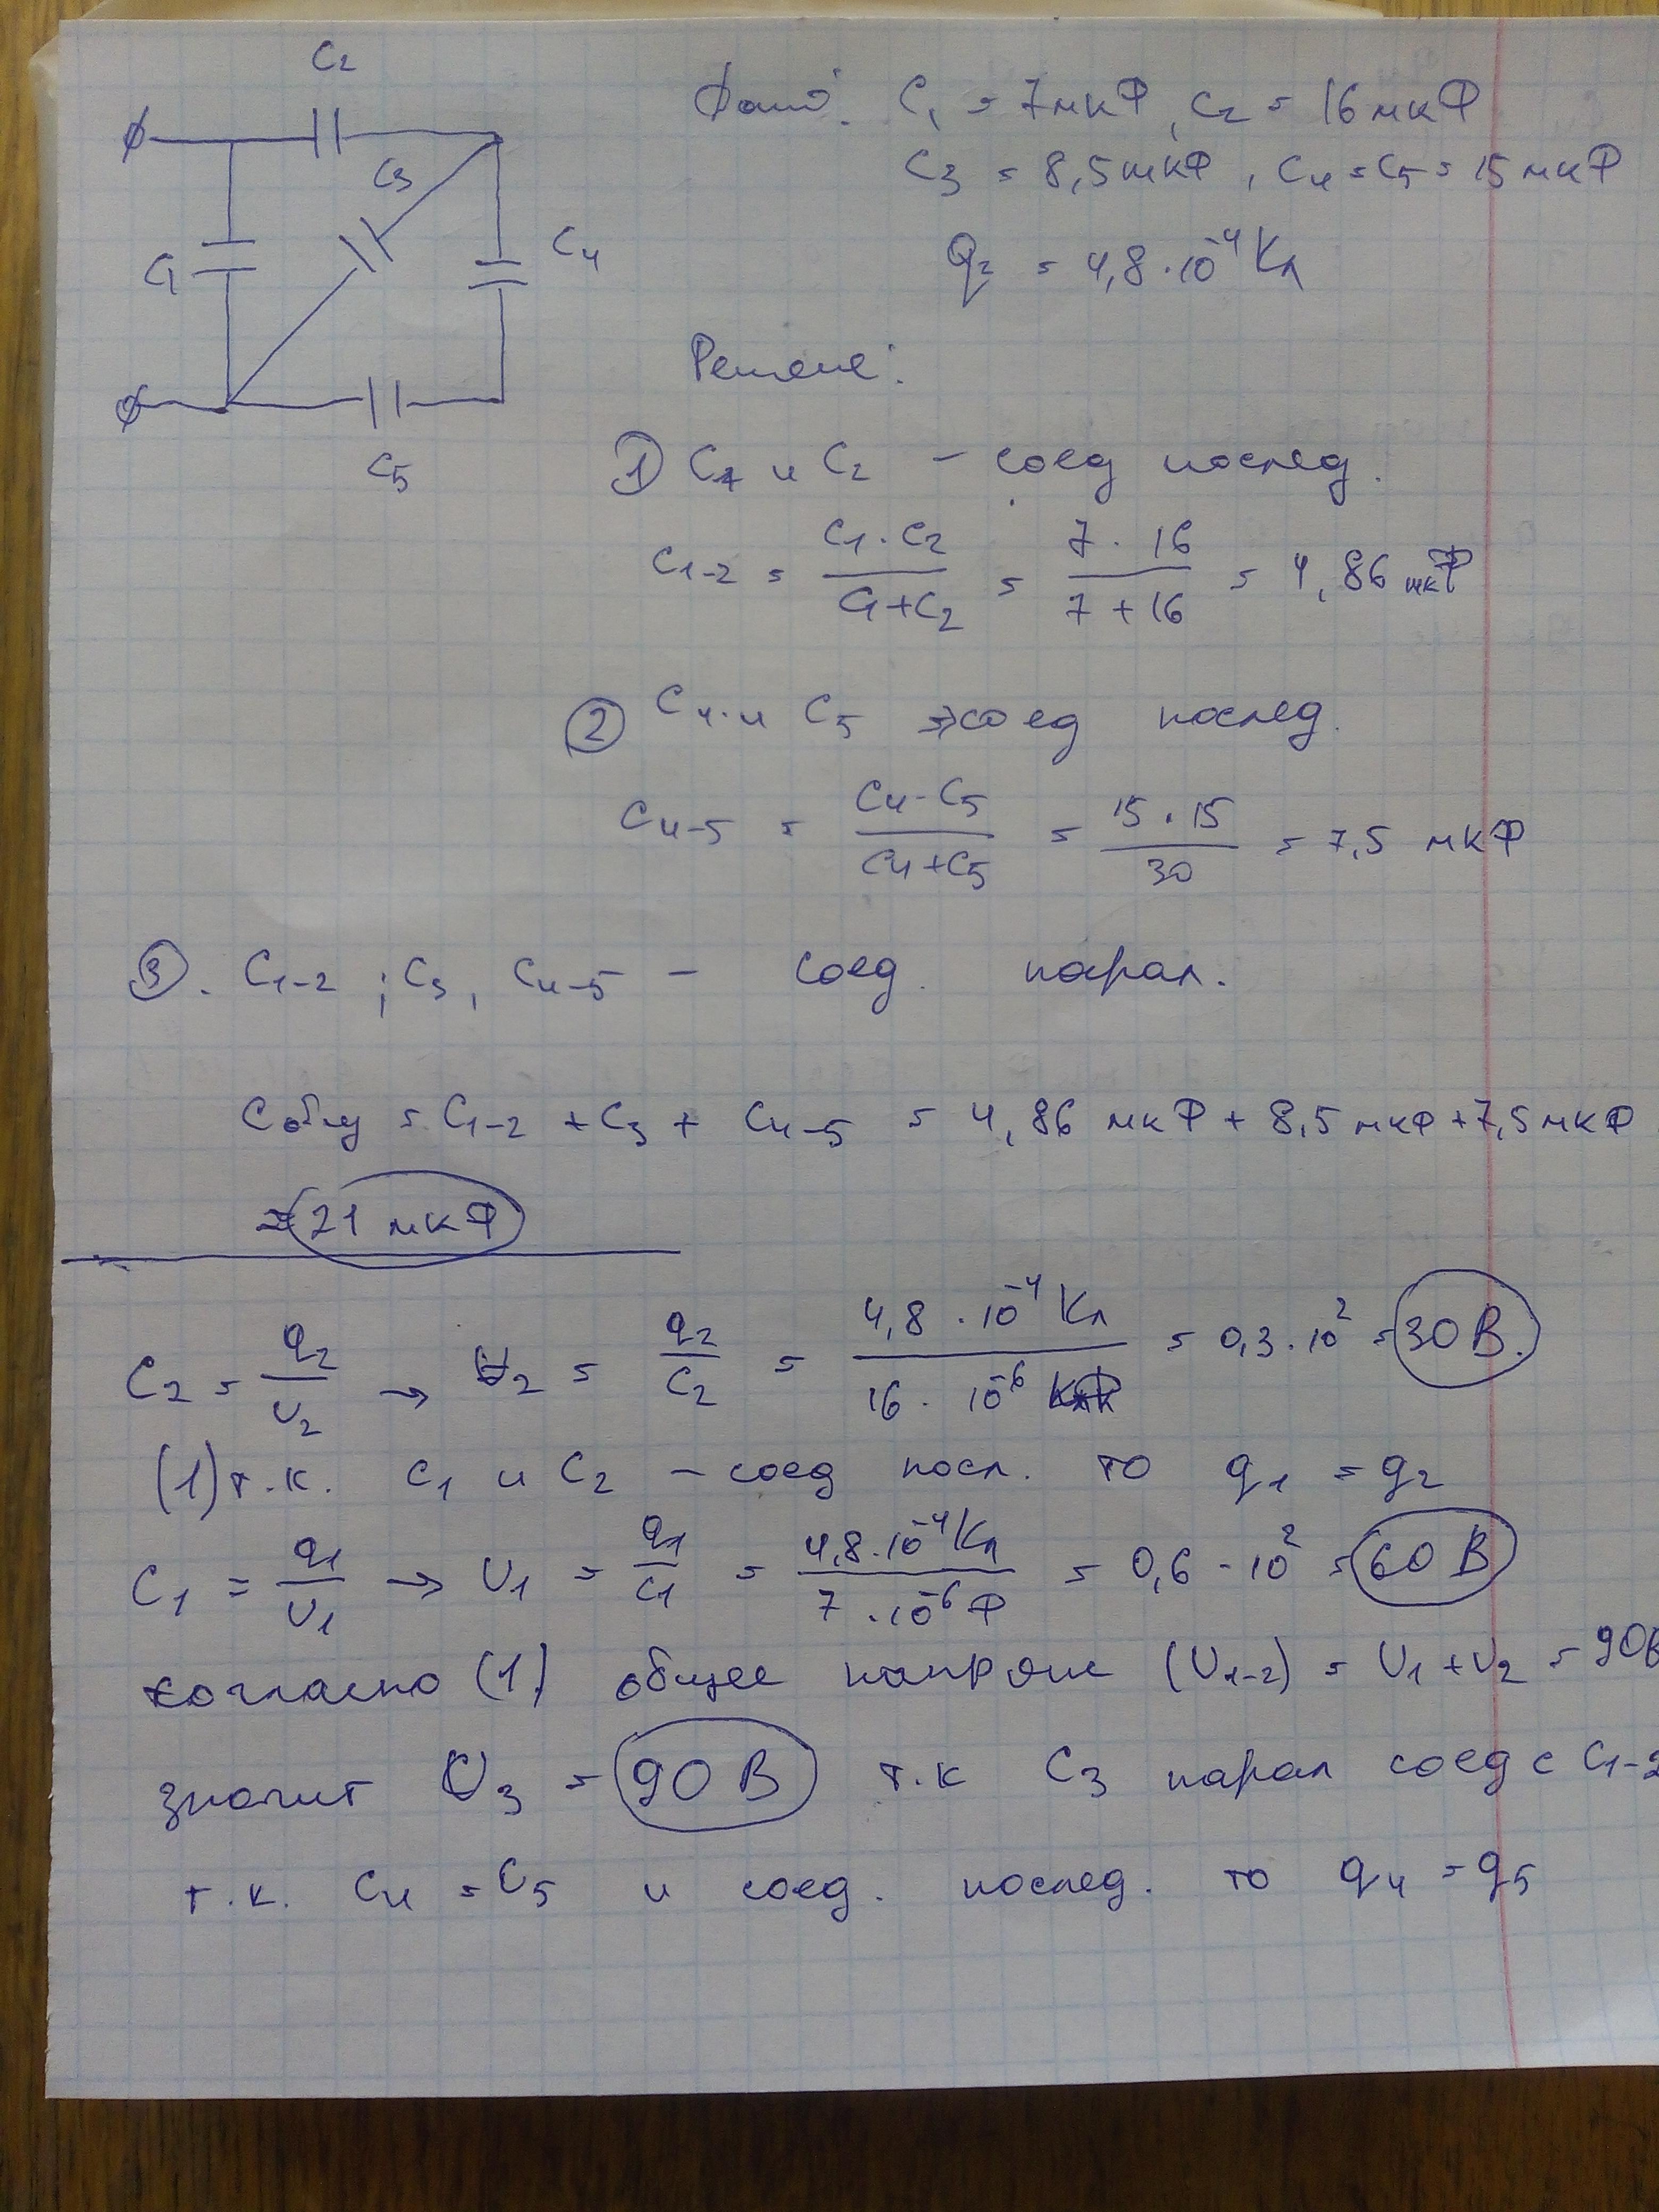 C2
C3
C1
C4
C5
Дано: C1 = 7мкФ, C2 = 16 мкФ
C3 = 8,5мкФ, C4 = C5 = 15 мкФ
q2 = 4,8·10⁻⁴ Кл
Решение:
① C1 и C2 – соед послед.
C1-2 = (C1·C2)/(C1+C2) = (7·16)/(7+16) = 4,86 мкФ
② C4 и C5 → соед послед.
C4-5 = (C4·C5)/(C4+C5) = (15·15)/30 = 7,5 мкФ
③. C1-2; C3, C4-5 – соед. парал.
Cобщ = C1-2 + C3 + C4-5 = 4,86 мкФ + 8,5 мкФ + 7,5 мкФ
≈ 21 мкФ
C2 = q2/U2 → U2 = q2/C2 = (4,8·10⁻⁴ Кл)/(16·10⁻⁶) = 0,3·10² = 30 В.
(1) т.к. C1 и C2 – соед посл. то q1 = q2
C1 = q1/U1 → U1 = q1/C1 = (4,8·10⁻⁴ Кл)/(7·10⁻⁶ Ф) = 0,6·10² = 60 В
согласно (1) общее напряж (U1-2) = U1 + U2 = 90В
значит U3 = 90 В т.к C3 парал соед с C1-2
т.к. C4 = C5 и соед. послед. то q4 = q5